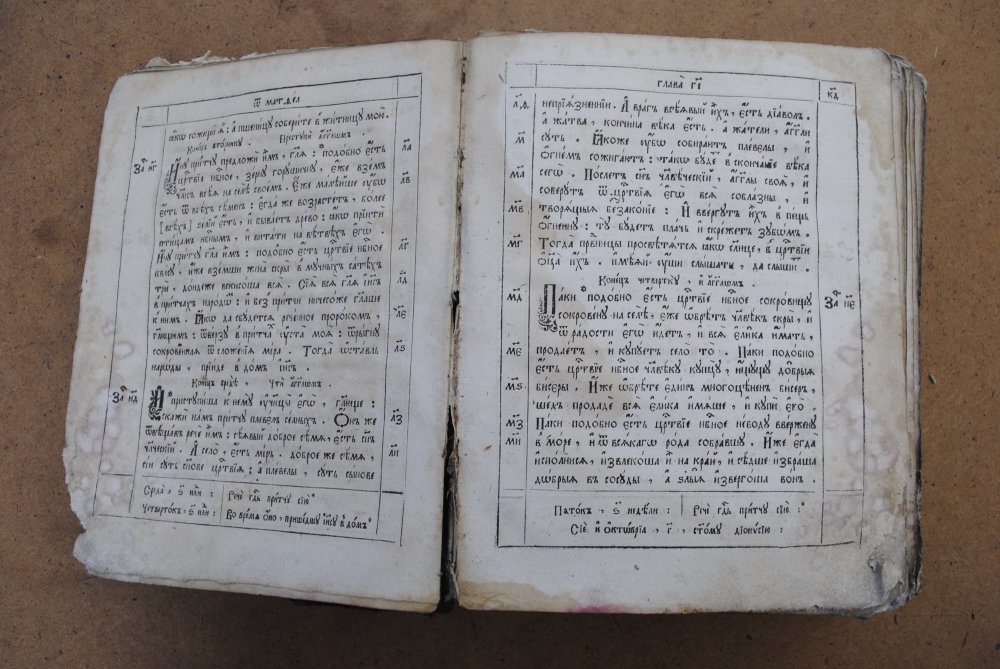 ѿ матѳеа
ꙗкѡ сожещи ѧ҆: а҆ пшеницу соберите в̾ житницу мою.
Конецъ вторнику. Приступи а҆гг҃лѡм.
За҃ нг҃
И҆ну притчу предложи и҆мъ, гл҃ѧ: подобно є҆сть
ла
црⷭ҇твїе нбⷭ҇ное, зерну горушичну, є҆же взем̾
чл҃къ всѣѧ на селѣ своем. Е҆же малѣйше ᲂу҆бѡ
лв
є҆сть ѿ всѣхъ сѣмен: є҆гда же возрастетъ, болѣе
[всѣхъ] зелїи є҆сть, и҆ бываетъ древо: ꙗкѡ прїити
птицам нбⷭ҇нымъ, и҆ витати на вѣтвѣхъ є҆гѡ.
И҆ну притчу гл҃а и҆мъ: подобно є҆сть црⷭ҇твїе нбⷭ҇ное
лг
квасу, и҆же вземши жена скры в мучныхъ сатѣхъ
трїи, дондеже вскисоша всѧ. Сїѧ всѧ гл҃а і҆и҃съ
лд
в притчахъ народѡ: и҆ без притчи ничесоже гл҃аше
к ним. Ꙗ҆кѡ да сбудетсѧ реченное пророком,
ле
гл҃ющим: ѿверзу в притчаⷯ ᲂу҆ста моѧ: ѿрыгну
сокровеннаѧ ѿ сложенїѧ мїра. Тогда ѡ҆ставль
лѕ
народы, прїиде в домъ і҆и҃съ.
Конецъ средѣ, Чти а҆гг҃лом.
За҃ нд҃
И҆ приступиша к нему ᲂу҆ченицы є҆гѡ, гл҃юще:
скажи намъ притчу плевелъ селныхъ. Ѻ҆нъ же
лз
ѿвѣщавъ рече и҆мъ: сѣѧвый доброе сѣмѧ, є҆сть сн҃ъ
чл҃ческїй. А҆ село, є҆сть мїръ, доброе же сѣмѧ,
ли
сїи суть сн҃ове црⷭ҇твїѧ: а҆ плевелы, суть сынове
Среда, з҃ нед̾ли: Рече гдⷭ҇ь притчу сїю
Четвертокъ, з҃ нед̾ли: Во времѧ ѻ҆но, пришедшу і҆и҃су в домъ
глава гі҃
кд
лѳ
непрїѧзненнїи. А҆ врагъ всѣѧвый и҆хъ, є҆сть дїаволъ.
а҆ жатва, кончина вѣка є҆сть. а҆ жатели, а҆гг҃ли
м
суть. Ꙗ҆коже ᲂу҆бѡ собираютъ плевелы, и҆
ѻ҆гнемъ сожигаютъ: такѡ будетъ в скончанїе вѣка
ма
сегѡ. Послетъ сн҃ъ чл҃вѣческїй, а҆гг҃лы своѧ, и҆
соберутъ ѿ црⷭ҇твїѧ є҆гѡ всѧ соблазны, и҆
мв
творѧщыѧ беззаконїе: И҆ ввергутъ и҆хъ в пещь
ѻ҆гненну: ту будетъ плачь и҆ скрежетъ зубѡмъ.
мг
Тогда првⷣницы просвѣтѧтсѧ ꙗкѡ слн҃це, в црⷭ҇твїи
ѻ҆ц҃а и҆хъ. и҆мѣѧй ᲂу҆ши слышати, да слышитъ.
Конецъ четвертку, и҆ а҆гг҃лѡм.
мд
Паки подобно є҆сть црⷭ҇твїе нбⷭ҇ное сокровищу
За҃ не҃
сокровену на селѣ, є҆же ѡ҆брѣтъ чл҃вѣкъ скры, и҆
ѿ радости є҆гѡ и҆детъ, и҆ всѧ є҆лика и҆мать,
ме
продаетъ, и҆ купуетъ село то. Паки подобно
є҆сть црⷭ҇твїе нбⷭ҇ное чл҃вѣку купцу, и҆щущу добрыѧ
мѕ
бисеры. И҆же ѡ҆брѣте є҆динъ многоцѣненъ бисеръ,
шедъ продаде всѧ є҆лика и҆мѧше, и҆ купи є҆го.
мз
Паки подобно є҆сть црⷭ҇твїе нбⷭ҇ное неводу ввержену
ми
в море, и҆ ѿ всѧкагѡ рода собравшу. И҆же є҆гда
и҆сполнисѧ, и҆звлекоша и҆ на край, и҆ сѣдше и҆збраша
добрыѧ въ сосуды, а҆ злыѧ и҆звергоша вонъ.
Пѧтокъ, з҃ недѣли: Рече гдⷭ҇ь притчу сїю:
Сїе и҆ ѻ҆ктѡврїа, г҃, ст҃ому дїонѵсїю: